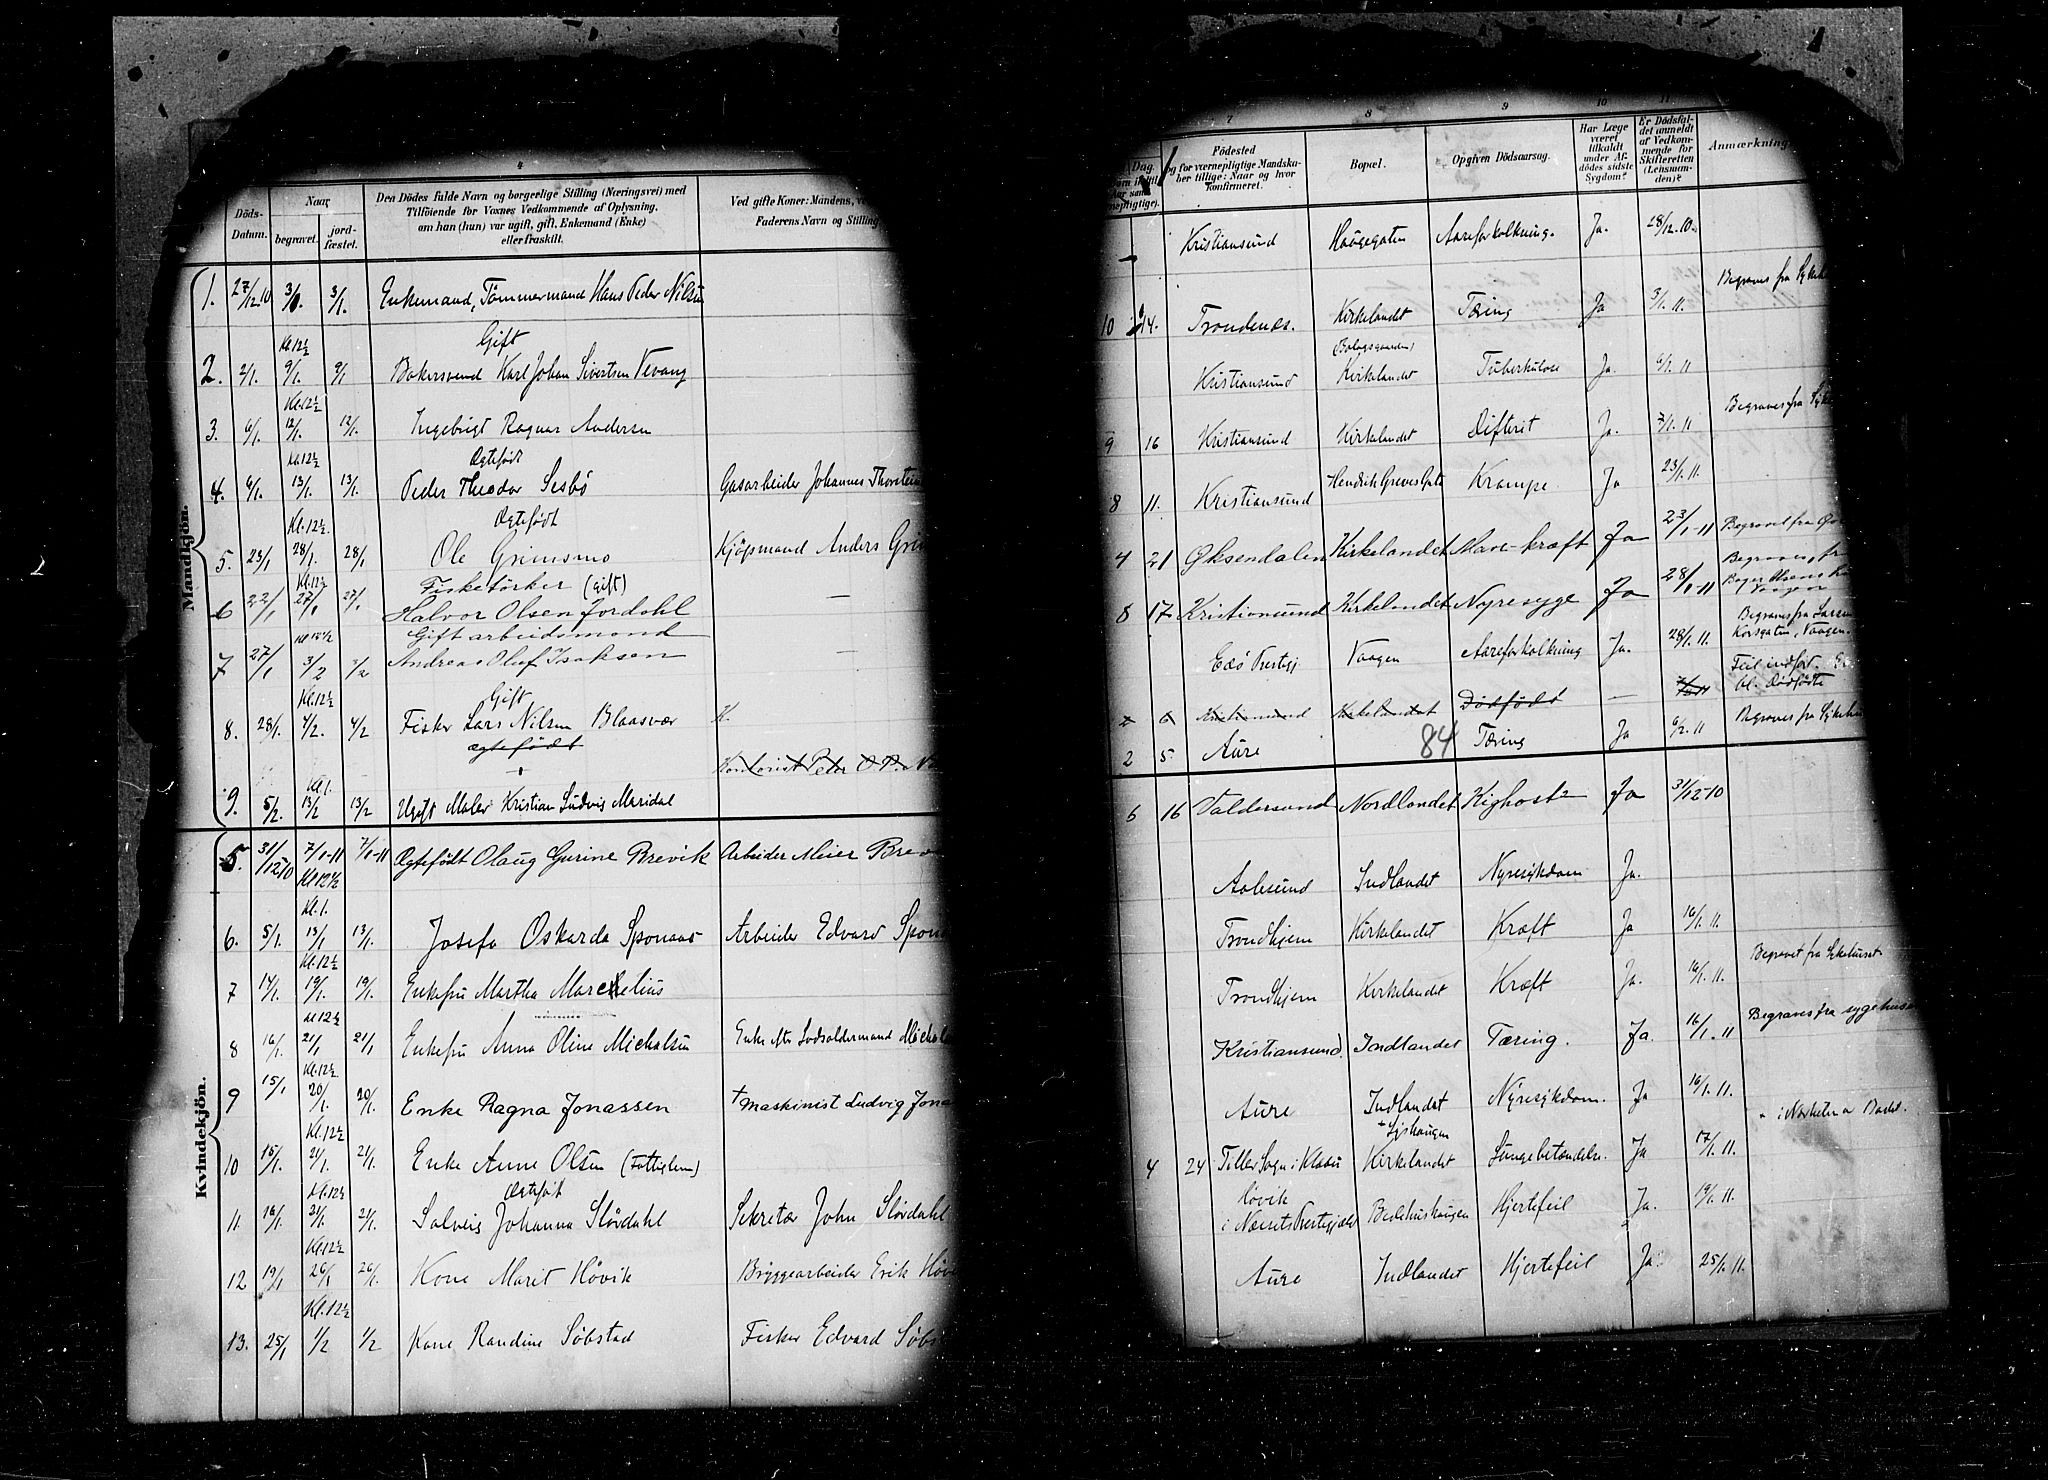 4
Döds-
Datum.
Naar
begravet.
jord-
fæstet.
Den Dödes fulde Navn og borgerlige Stilling (Næringsvei) med
Tilföiende for Voxnes Vedkommende af Oplysning,
om han (hun) var ugift, gift, Enkemand (Enke)
eller fraskilt.
Ved gifte Koner: Mandens,
Faderens Navn og Stilling
Mandkjön.
1. 27/12.10 3/1. 3/1. Enkemand, Tömmermand Hans Peder Nilsen
Kl 12½ Gift
2. 2/1. 9/1. 9/1 Bakersvend Karl Johan Sivertsen Vevang
Kl. 12½
3. 6/1. 12/1. 12/1. Ingebrigt Ragnar Andersen
Kl 12½ Ægtefödt
4. 6/1. 13/1. 13/1. Peder Theodor Sesbö Gasarbeider Johannes
Kl. 12½ Ægtefödt
5. 23/1 28/1. 28/1 Ole Grimsmo Kjöpmand Anders
Kl. 12½ Fisketörker (gift)
6 22/1 27/1 27/1 Halvor Olsen Jordahl —
Gift arbeidsmand
7 27/1 3/2 3/2 Andreas Oluf Isaksen —
Kl. 12½ Gift
8. 28/1. 4/2. 4/2 Fisker Lars Nilsen Blaasvær K.
ægtefödt
Kontorist Peter
Kl 1.
9. 5/2. 13/2 13/2 Ugift Maler Kristian Ludvig Maridal
Kvindekjön.
5. 31/12 10 7/1-11 7/1-11 Ægtefödt Olaug Gurine Brevik Arbeider Meier
Kl 12½
Kl. 1.
6. 5/1. 13/1 13/1. Josefa Oskarda Sponaas Arbeider Edvard
Kl. 12½
7 14/1. 19/1. 19/1. Enkefru Martha Marcelius
Kl 12½
8 16/1. 21/1 21/1 Enkefru Anna Oline Michalsen Enke efter Lodsoldermand
Kl. 12½
9 15/1 20/1. 20/1. Enke Ragna Jonassen + Maskinist Ludvig
Kl. 12½
10 15/1. 21/1. 21/1. Enke Anne Olsen (Fattiglem)
Kl. 12½ Ægtefödt
11. 16/1. 21/1. 21/1. Solveig Johanna Slördahl Sekretær John Slördahl
Kl. 12½
12 19/1 26/1 26/1. Kone Marit Hövik Bryggearbeider Erik
Kl. 12½
13. 25/1 1/2 1/2 Kone Randine Söbstad Fisker Edvard
7
8
9
10
11
Dag.
Födested
og for værnepligtige Mandska-
ber tillige: Naar og hvor
konfirmeret.
Bopæl.
Opgiven Dödsaarsag.
Har Læge
været
tilkaldt
under Af-
dödes sidste
Sygdom?
Er Dödsfal-
det anmeldt
af Vedkom-
mende for
Skifteretten
(Lensman-
den)?
Anmærkning
Kristiansund Aareforkalkning. Ja. 28/12.10.
Begraves fra
10 14. Trondenes. Kirkelandet Tæring Ja 3/1. 11.
Kristiansund Kirkelandet Tuberkulose Ja. 6/1. 11
Begraves fra
9 16 Kristiansund Kirkelandet Difterit Ja. 7/1. 11
8 11. Kristiansund Krampe Ja 23/1. 11.
4 21 Øksendalen Kirkelandet Mave-kræft Ja 23/1-11 Begravet fra
Begraves fra
8 17 Kristiansund Kirkelandet Nyresyge Ja 28/1-11
Begraves fra
Edö Prestgj Vaagen Aareforkalkning Ja. 28/1. 11 Korsgaten, Vaagen.
Feil indfört.
Kristiansund Kirkelandet Dödfödt — bl. Dödfödte
2 5. Aure 84 Tæring Ja 6/2. 11 Begraves fra Sykehus
6 16 Valdersund Nordlandet Kighoste Ja 31/12-10
Aalesund Indlandet Nyresykdom Ja.
Trondhjem Kirkelandet Kræft Ja 16/1. 11.
Begravet fra Sykehuset
Trondhjem Kirkelandet Kræft Ja. 16/1. 11.
Begraves fra sygehuset
Kristiansund. Indlandet Tæring. Ja. 16/1. 11
Aure Indlandet Nyresykdom. Ja 16/1. 11.
4 24 Tiller Sogn i Klæbu Kirkelandet Lungebetændelse Ja 17/1. 11.
Hövik
i Næssets Prestegjæld Bedehushaugen Hjertefeil Ja. 19/1. 11.
Aure Indlandet Hjertefeil Ja. 25/1. 11.